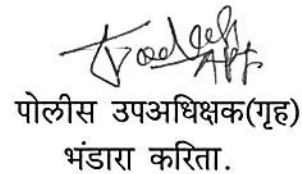 पोलीस उपअधिक्षक(गृह)
भंडारा करिता.